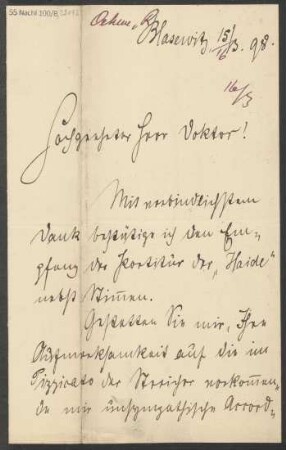 55 Nachl 100/B,
Oehme, R.
Blasewitz 15/3. 98.
16/3
Hochgeehrter Herr Doktor!
Mit verbindlichstem
Dank bestätige ich den Em-
pfang der Partitur der „Haide“
nebst Stimmen.
Gestatten Sie mir, Ihre
Aufmerksamkeit auf die im
Pizzicato der Streicher vorkommen-
de mir unsympathische Accord-